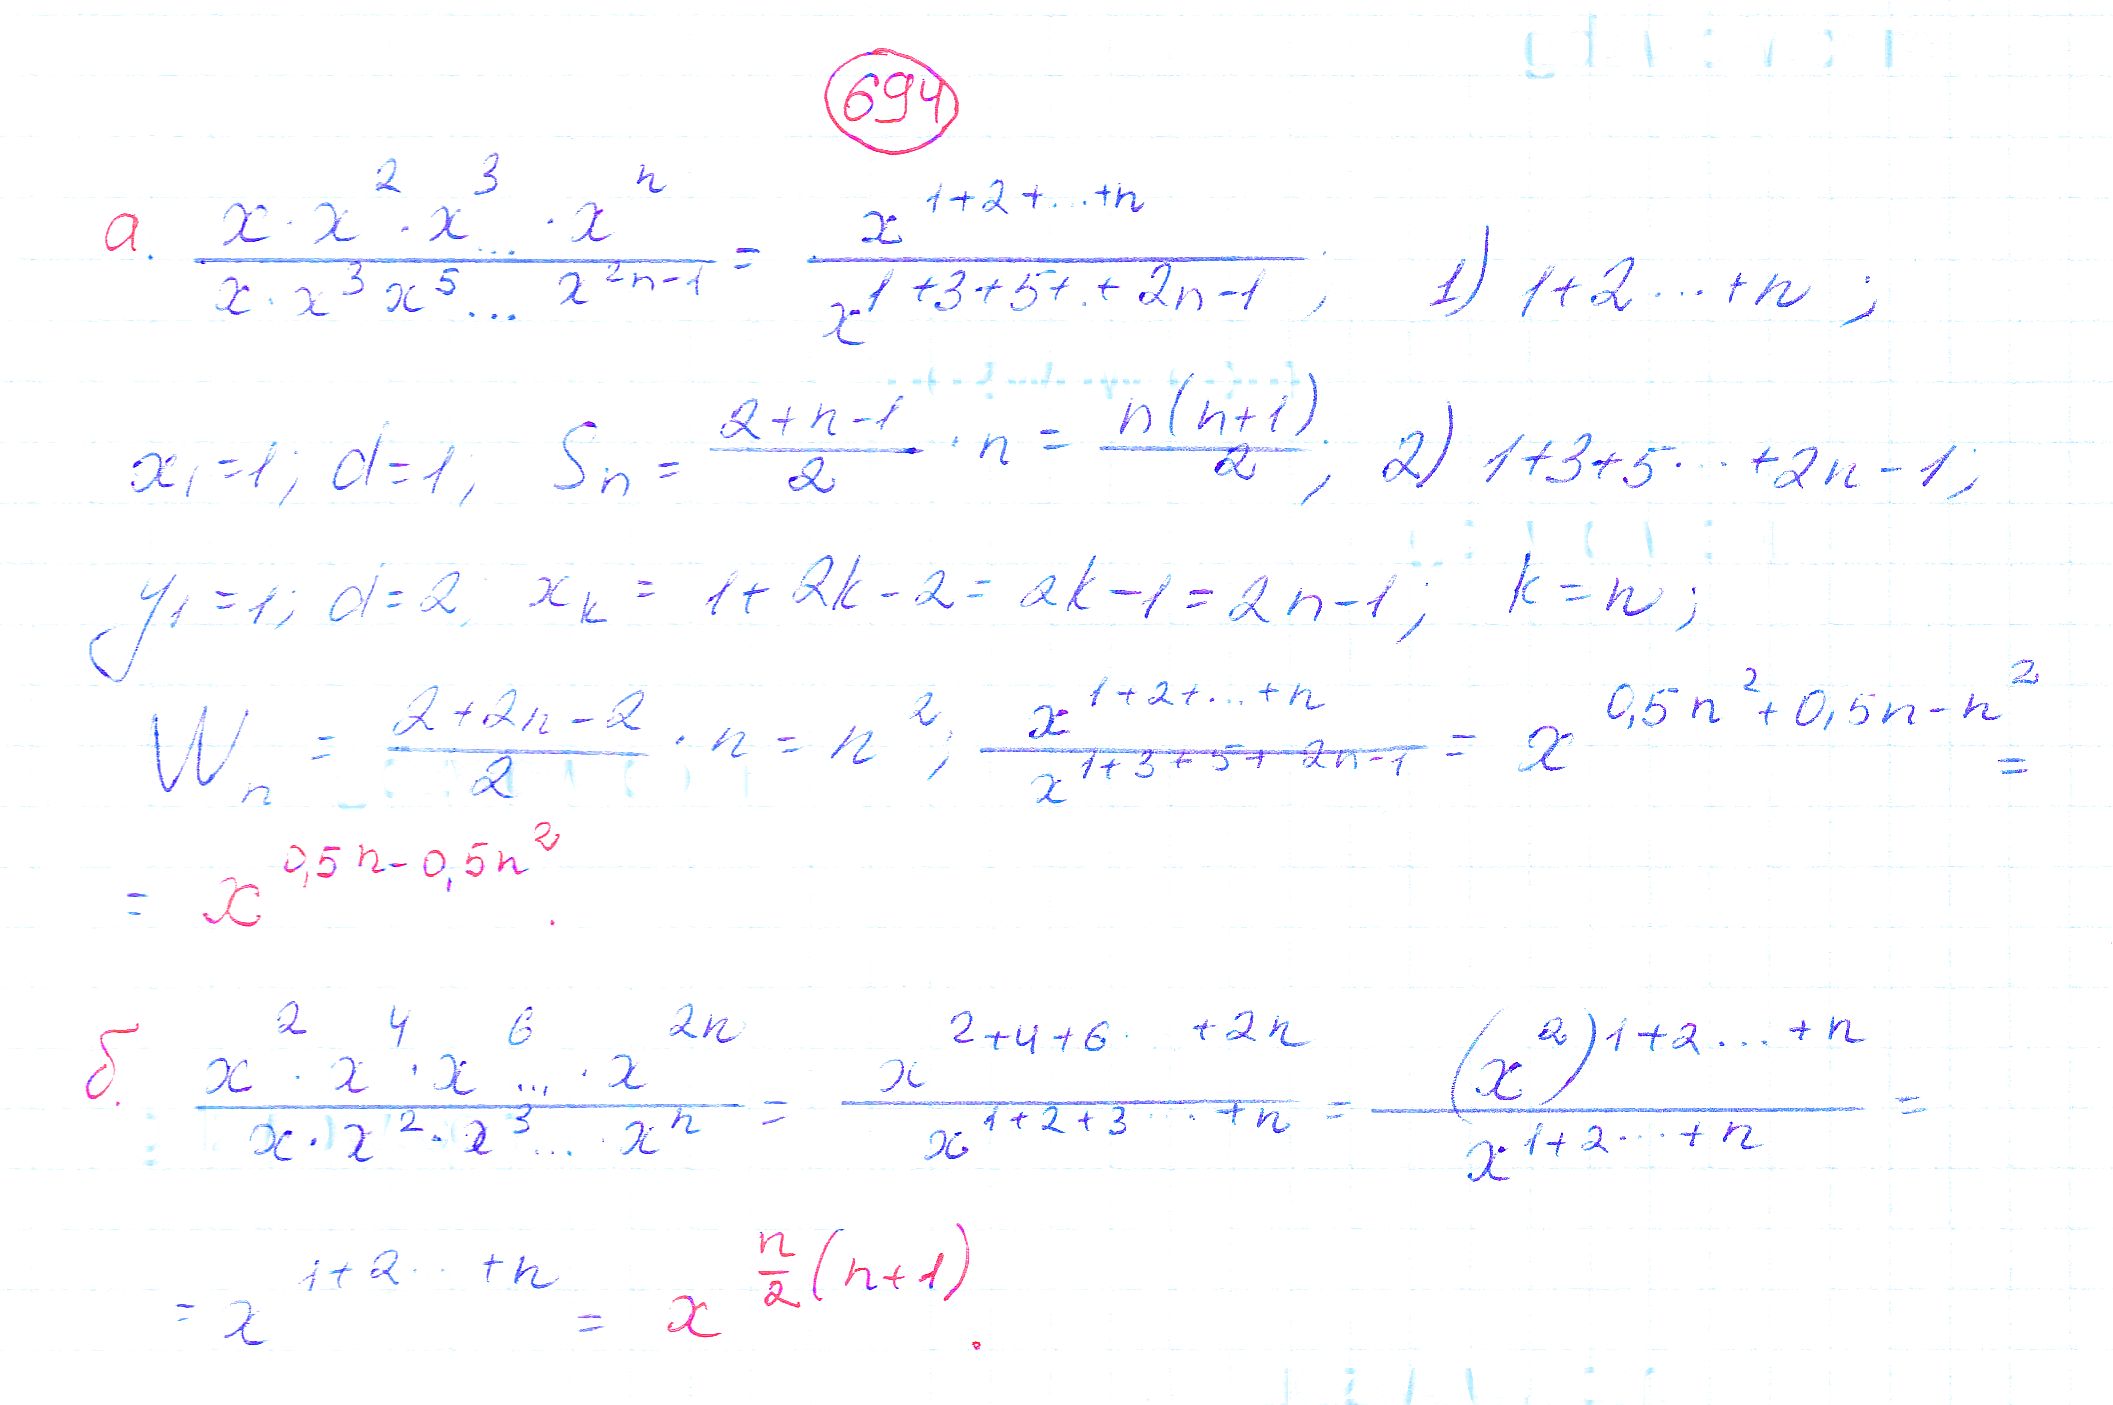 694
а. (x · x² · x³ ... · xⁿ)/(x · x³ x⁵ ... x²ⁿ⁻¹) = x^(1+2+...+n)/x^(1+3+5+..+2n-1); 1) 1+2...+n;
x₁=1; d=1; Sₙ = (2+n-1)/2 · n = n(n+1)/2; 2) 1+3+5...+2n-1;
y₁=1; d=2; xₖ = 1+2k-2 = 2k-1 = 2n-1; k=n;
Wₙ = (2+2n-2)/2 · n = n²; x^(1+2+...+n)/x^(1+3+5+ 2n-1) = x^(0,5n²+0,5n-n²) =
= x^(0,5n-0,5n²).
б. (x² · x⁴ · x⁶ ... · x²ⁿ)/(x · x² · x³ ... xⁿ) = x^(2+4+6...+2n)/x^(1+2+3...+n) = (x²)^(1+2...+n)/x^(1+2...+n) =
= x^(1+2...+n) = x^(n/2 (n+1)).